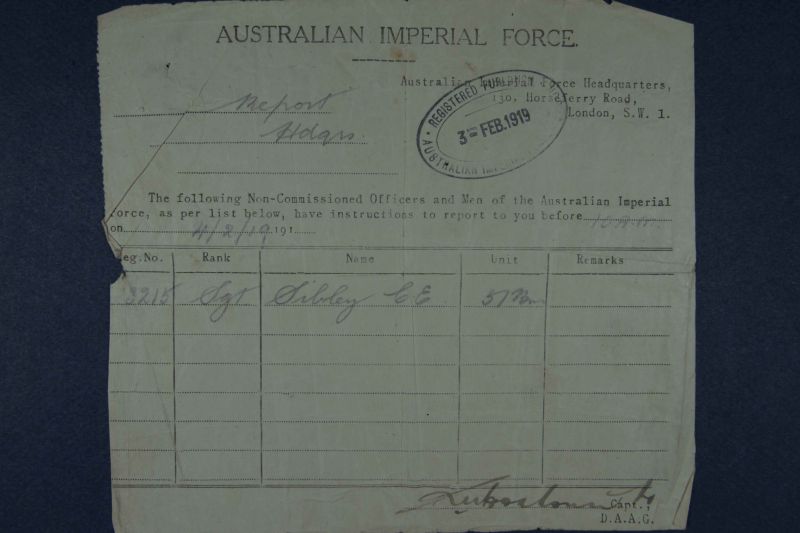 AUSTRALIAN IMPERIAL FORCE.
Australian Imperial Force Headquarters,
130, Horseferry Road,
London, S.W. 1.
REGISTERED
3 FEB. 1919
AUSTRALIAN
Report
Hdqrs.
The following Non-Commissioned Officers and Men of the Australian Imperial
Force, as per list below, have instructions to report to you before 10 A.M.
on 4/2/19 191
Reg.No. Rank Name Unit Remarks
3215 Sgt Sibley C E 51 Bn
Capt.,
D.A.A.G.